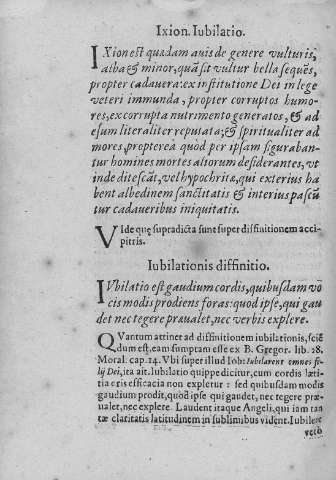 Ixion. Iubilatio.
IXion est quædam auis de genere vulturis,
alba & minor, quã sit vultur bella sequẽs,
propter cadauera: ex institutione Dei in lege
veteri immunda, propter corruptos humo-
res, ex corrupta nutrimento generatos, & ad
esum literaliter reputata; & spiritualiter ad
mores, propterea quòd per ipsam figuraban-
tur homines mortes aliorum desiderantes, vt
inde ditescãt, vel hypochritæ, qui exterius ha
bent albedinem sanctitatis & interius pascũ
tur cadaueribus iniquitatis.
VIde quę supradicta sunt super diffinitionem acci-
pitris.
Iubilationis diffinitio.
IVbilatio est gaudium cordis, quibusdam vo
cis modis prodiens foras: quod ipse, qui gau
det nec tegere præualet, nec verbis explere.
QVantum attinet ad diffinitionem iubilationis, sciẽ
dum est, eam sumptam esse ex B. Gregor. lib. 28.
Moral. cap. 14. Vbi super illud Iob: Iubilarent omnes fi-
lij Dei, ita ait. Iubilatio quippe dicitur, cum cordis læti-
tia oris efficacia non expletur: sed quibusdam modis
gaudium prodit, quod ipse qui gaudet, nec tegere præ-
ualet, nec explere. Laudent itaque Angeli, qui iam tan
tæ claritatis latitudinem in sublimibus vident. Iubilent
vero